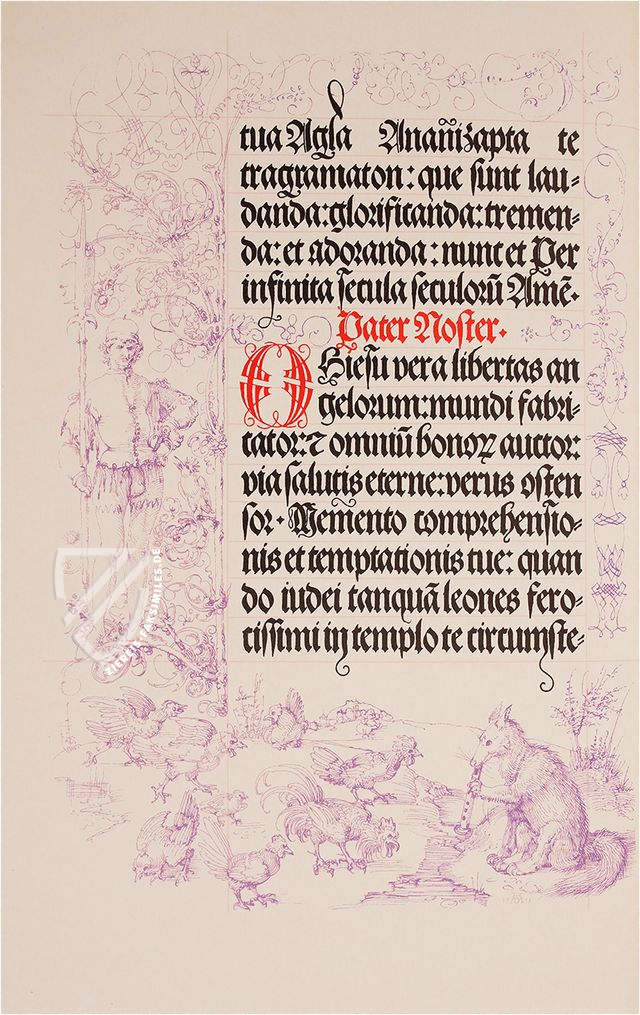 tua Agla Anañizapta te
tragramaton: que sunt lau-
danda: glorificanda: tremen-
da: et adoranda: nunc et Per
infinita secula seculorū Amē.
Pater Noster.
O Hiesu vera libertas an
gelorum: mundi fabri-
cator: ⁊ omniū bonoꝝ auctor:
via salutis eterne: verus ꝯsten
sor. Memento comprehensio-
nis et temptationis tue: quan
do iudei tanquā leones fero-
cissimi in templo te circumste-
ZIEREIS-FACSIMILES.DE